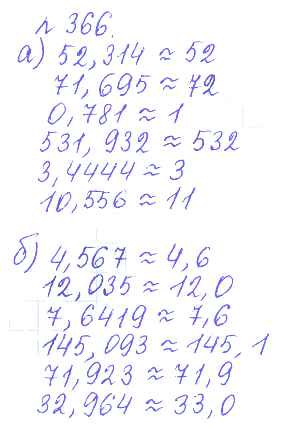 № 366.
а) 52,314 ≈ 52
71,695 ≈ 72
0,781 ≈ 1
531,932 ≈ 532
3,4444 ≈ 3
10,556 ≈ 11
б) 4,567 ≈ 4,6
12,035 ≈ 12,0
7,6419 ≈ 7,6
145,093 ≈ 145,1
71,923 ≈ 71,9
32,964 ≈ 33,0